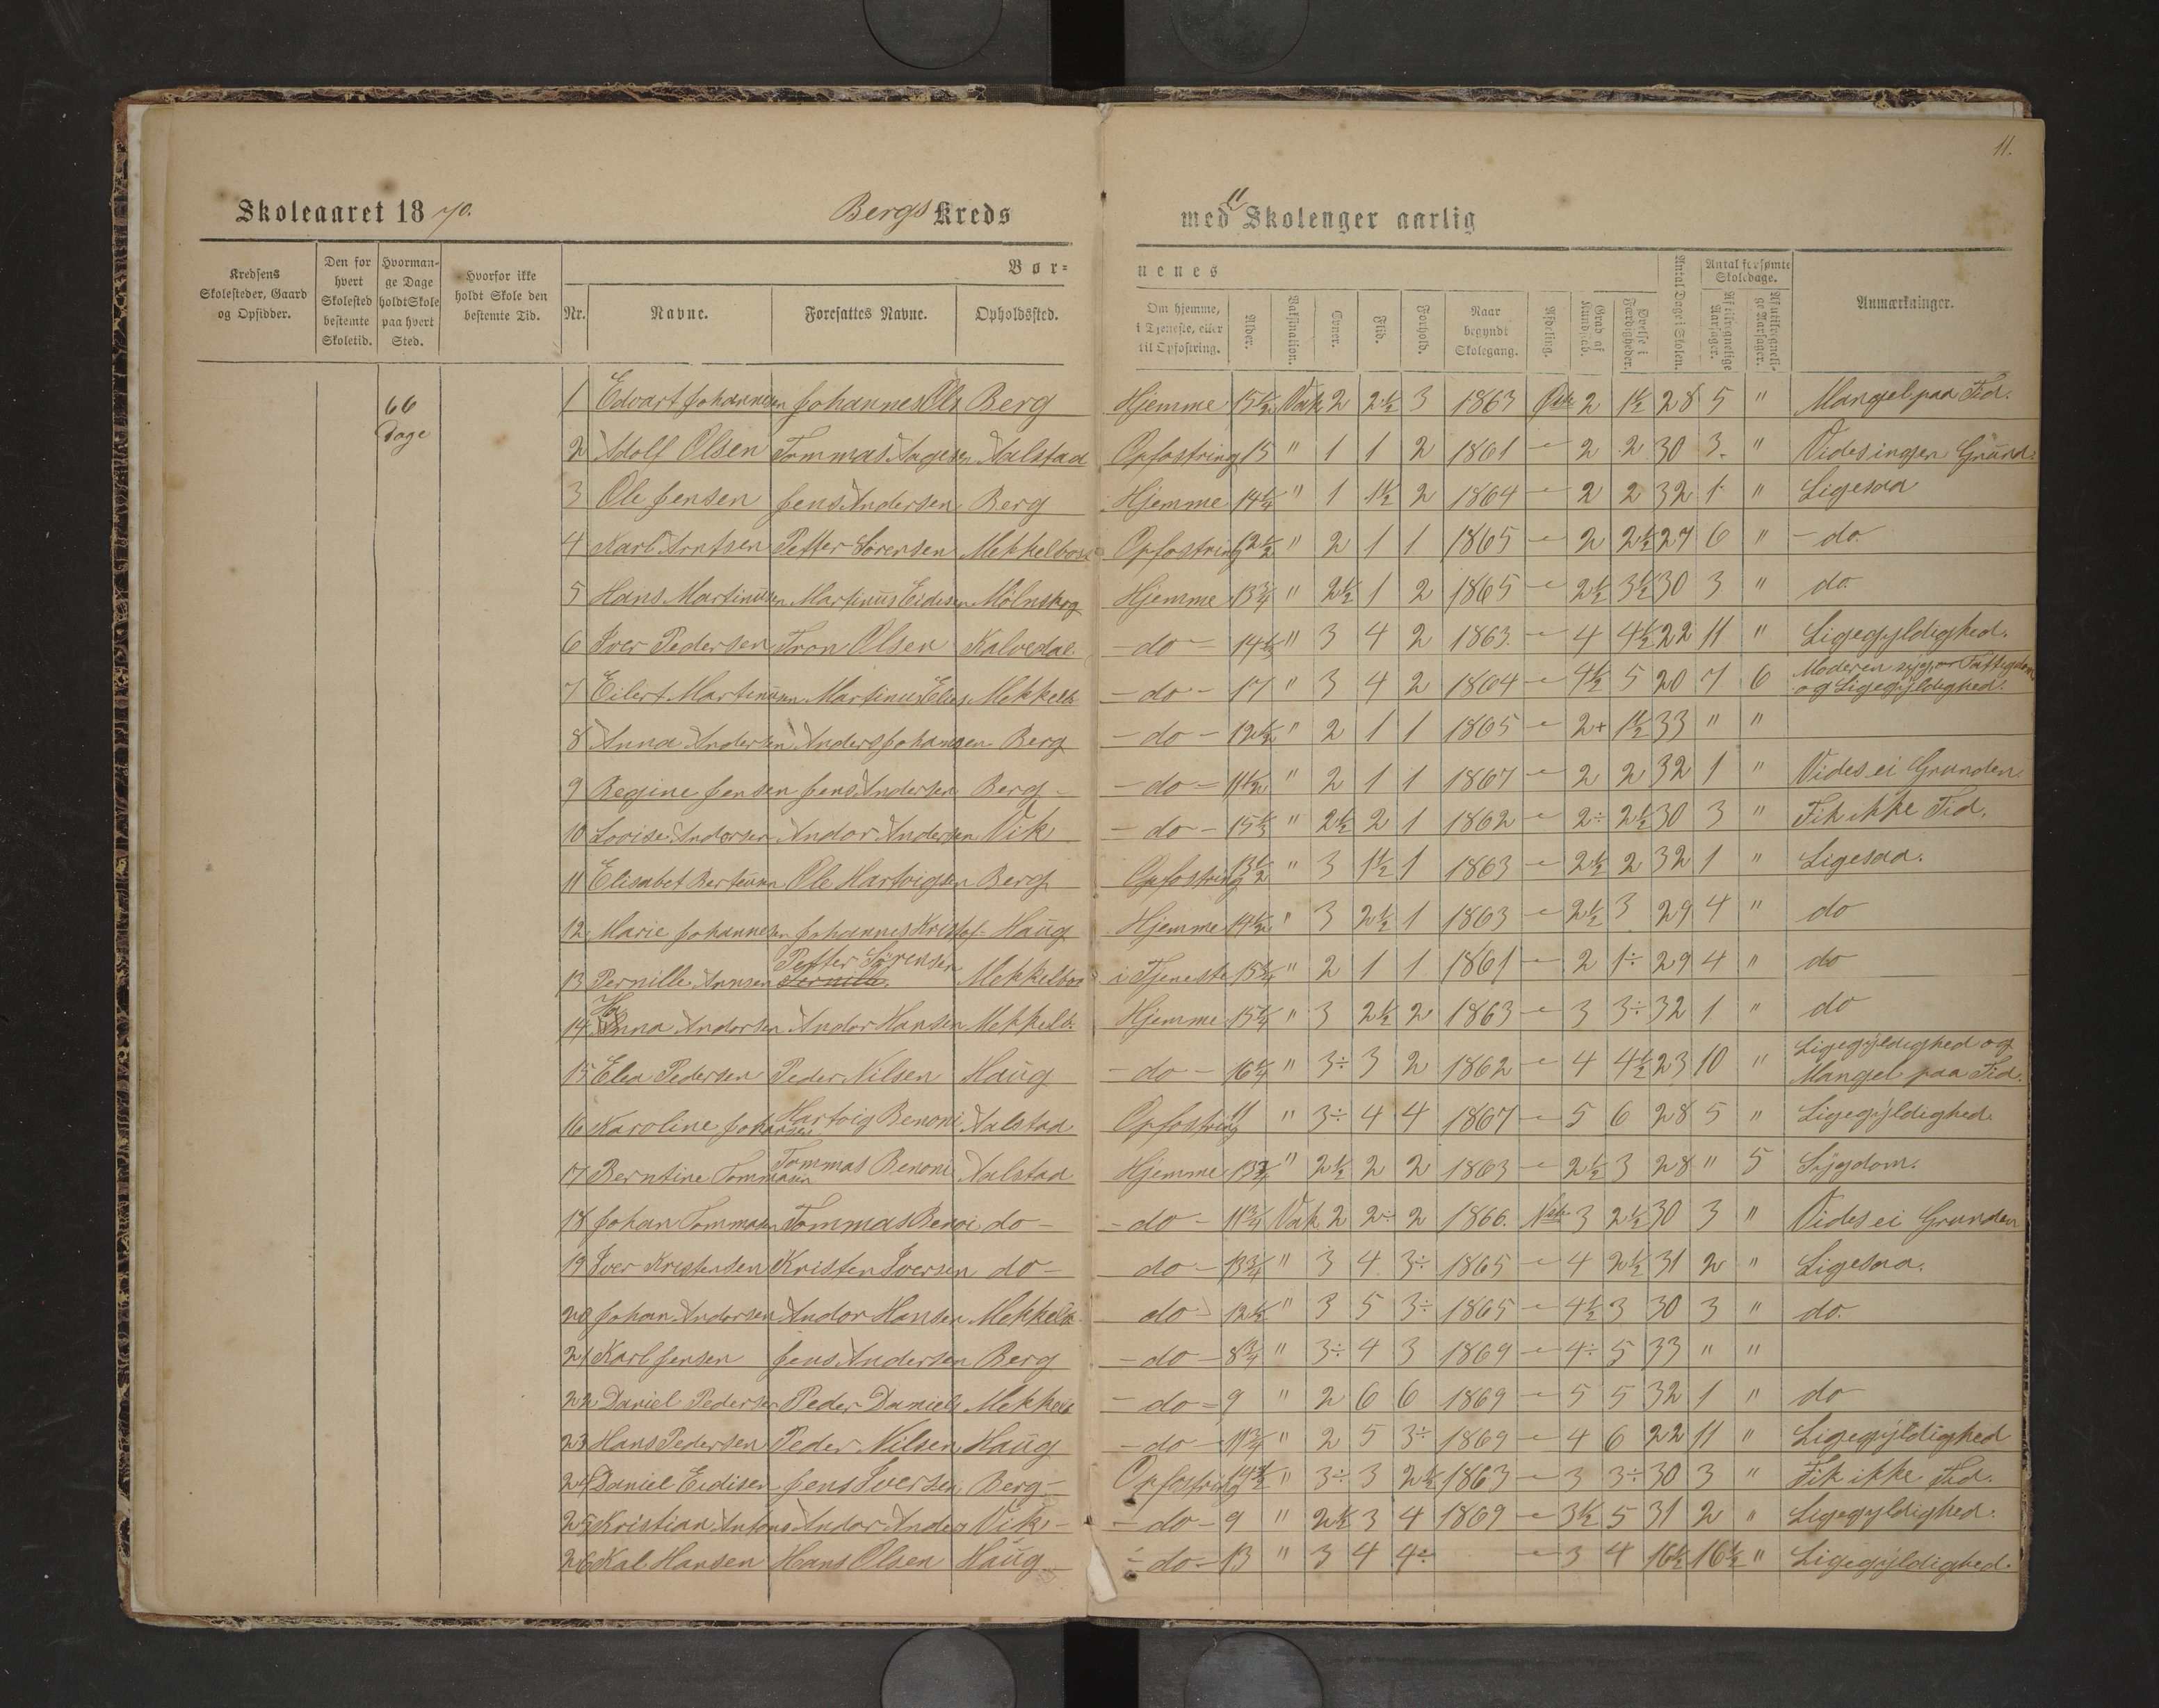 11.
Skoleaaret 1870. Bergs Kreds med 11 Skolenger aarlig
Kredsens Skolesteder, Gaard og Opsidder.
Den for hvert Skolested bestemte Skoletid.
Hvormange Dage holdt Skole paa hvert Sted.
Hvorfor ikke holdt Skole den bestemte Tid.
Børnenes
Nr.
Navne.
Foresattes Navne.
Opholdssted.
Om hjemme, i Tjeneste, eller til Opfostring.
Alder.
Vaksination.
Evner.
Flid.
Forhold.
Naar begyndt Skolegang.
Afdeling.
Grad af Kundskab.
Øvelse i Færdigheder.
Antal Dage i Skolen.
Antal forsømte Skoledage.
Af tilregnelige Aarsager.
Af utilregnelige Aarsager.
Anmærkninger.
66 Dage
1 Edvart Johannesen Johannes Ols Berg Hjemme 15 1/2 Vak 2 2 1/2 3 1863 2 1 1/2 28 5 " Mangel paa Tid.
2 Adolf Olsen Tommas Aagesen Aalstad Opfostring 15 " 1 1 2 1861 - 2 2 30 3. " Vides ingen Grund.
3 Ole Jensen Jens Andersen Berg Hjemme 14 1/4 " 1 1 1/2 2 1864 - 2 2 32 1 " Ligesaa
4 Karl Arntsen Petter Sørensen Mekkelbost Opfostring 12 1/2 " 2 1 1 1865 - 2 2 1/2 27 6 " - do.
5 Hans Martinusen Martinus Eidesen Mölnskog Hjemme 13 3/4 " 2 1/2 1 2 1865 - 2 1/2 3 1/2 30 3 " do.
6 Iver Pedersen Tron Olsen Kalvedal - do - 14 1/2 " 3 4 2 1863. - 4 4 1/2 22 11 " Ligegyldighed.
7 Eilert Martinusn Martinus Elies Mekkelb - do - 17 " 3 4 2 1864 - 4 1/2 5 20 7 6 Moderen syg, or Fattigdom og Ligegyldighed.
8 Anna Andersen Anders Johansen Berg - do - 12 1/2 " 2 1 1 1865 - 2+ 1 1/2 33 " "
9 Regine Jensen Jens Andersen Berg - - do - 11 1/2 " 2 1 1 1867 - 2 2 32 1 " Vides ei Grunden
10 Lovise Andorsen Andor Andersen Vik - do - 15 1/3 " 2 1/2 2 1 1862 - 2÷ 2 1/2 30 3 " Fik ikke Tid.
11 Elisabet Ole Hartvigsen Berg Opfostring 13 1/2 " 3 1 1/2 1 1863 - 2 1/2 2 32 1 " Ligesaa.
12 Marie Johannesen Johannes Kristof- Haug Hjemme 14 1/2 " 3 2 1/2 1 1863 - 2 1/2 3 29 4 " do
13 Pernille Annsen Petter Sørensen Mekkelbos i Tjeneste 15 3/4 " 2 1 1 1861 - 2 1÷ 29 4 " do
14 Anna Andorsen Andor Hansen Mekkelb. Hjemme 15 1/4 " 3 2 1/2 2 1863 - 3 3÷ 32 1 " do
15 Elea Pedersen Peder Nilsen Haug - do - 16 1/4 " 3÷ 3 2 1862 - 4 4 1/2 23 10 " Ligegyldighed og Mangel paa Tid.
16 Karoline Johansen Hartvig Benoni Aalstad Opfostring 11 " 3÷ 4 4 1867 - 5 6 28 5 " Ligegyldighed.
17 Berntine Tommasen Tommas Benoni Aalstad Hjemme 13 3/4 " 2 1/2 2 2 1863 - 2 1/2 3 28 " 5 Sygdom.
18 Johan Tommasen Tommas Benoi do - - do - 11 3/4 Vak 2 2÷ 2 1866. 3 2 1/2 30 3 " Vides ei Grunden
19 Iver Kristensen Kristen Iversen do - do - 13 3/4 " 3 4 3÷ 1865 - 4 2 1/2 31 2 " Ligesaa.
20 Johan Andorsen Andor Hansen Mekkelb do 12 1/2 " 3 5 3÷ 1865 - 4 1/2 3 30 3 " do.
21 Karl Jensen Jens Andersen Berg - do - 8 3/4 " 3÷ 4 3 1869 - 4÷ 5 33 " "
22 Daniel Pedersen Peder Daniels Mekkelb - do - 9 " 2 6 6 1869 - 5 5 32 1 " do
23 Hans Pedersen Peder Nilsen Haug - do - 11 3/4 " 2 5 3÷ 1869 - 4 6 22 11 " Ligegyldighed
24 Daniel Eidisen Jens Iversen Berg - Opfostring 14 1/2 " 3÷ 3 2 1/2 1863 - 3 3÷ 30 3 " Fik ikke Tid.
25 Kristian Antons Andor Anders Vik - - do - 9 " 2 1/2 3 4 1869 - 3 1/2 5 31 2 " Ligegyldighed.
26 Kal Hansen Hans Olsen Haug - do - 13 " 3 4 4÷ - 3 4 16 1/2 16 1/2 " Ligegyldighed.